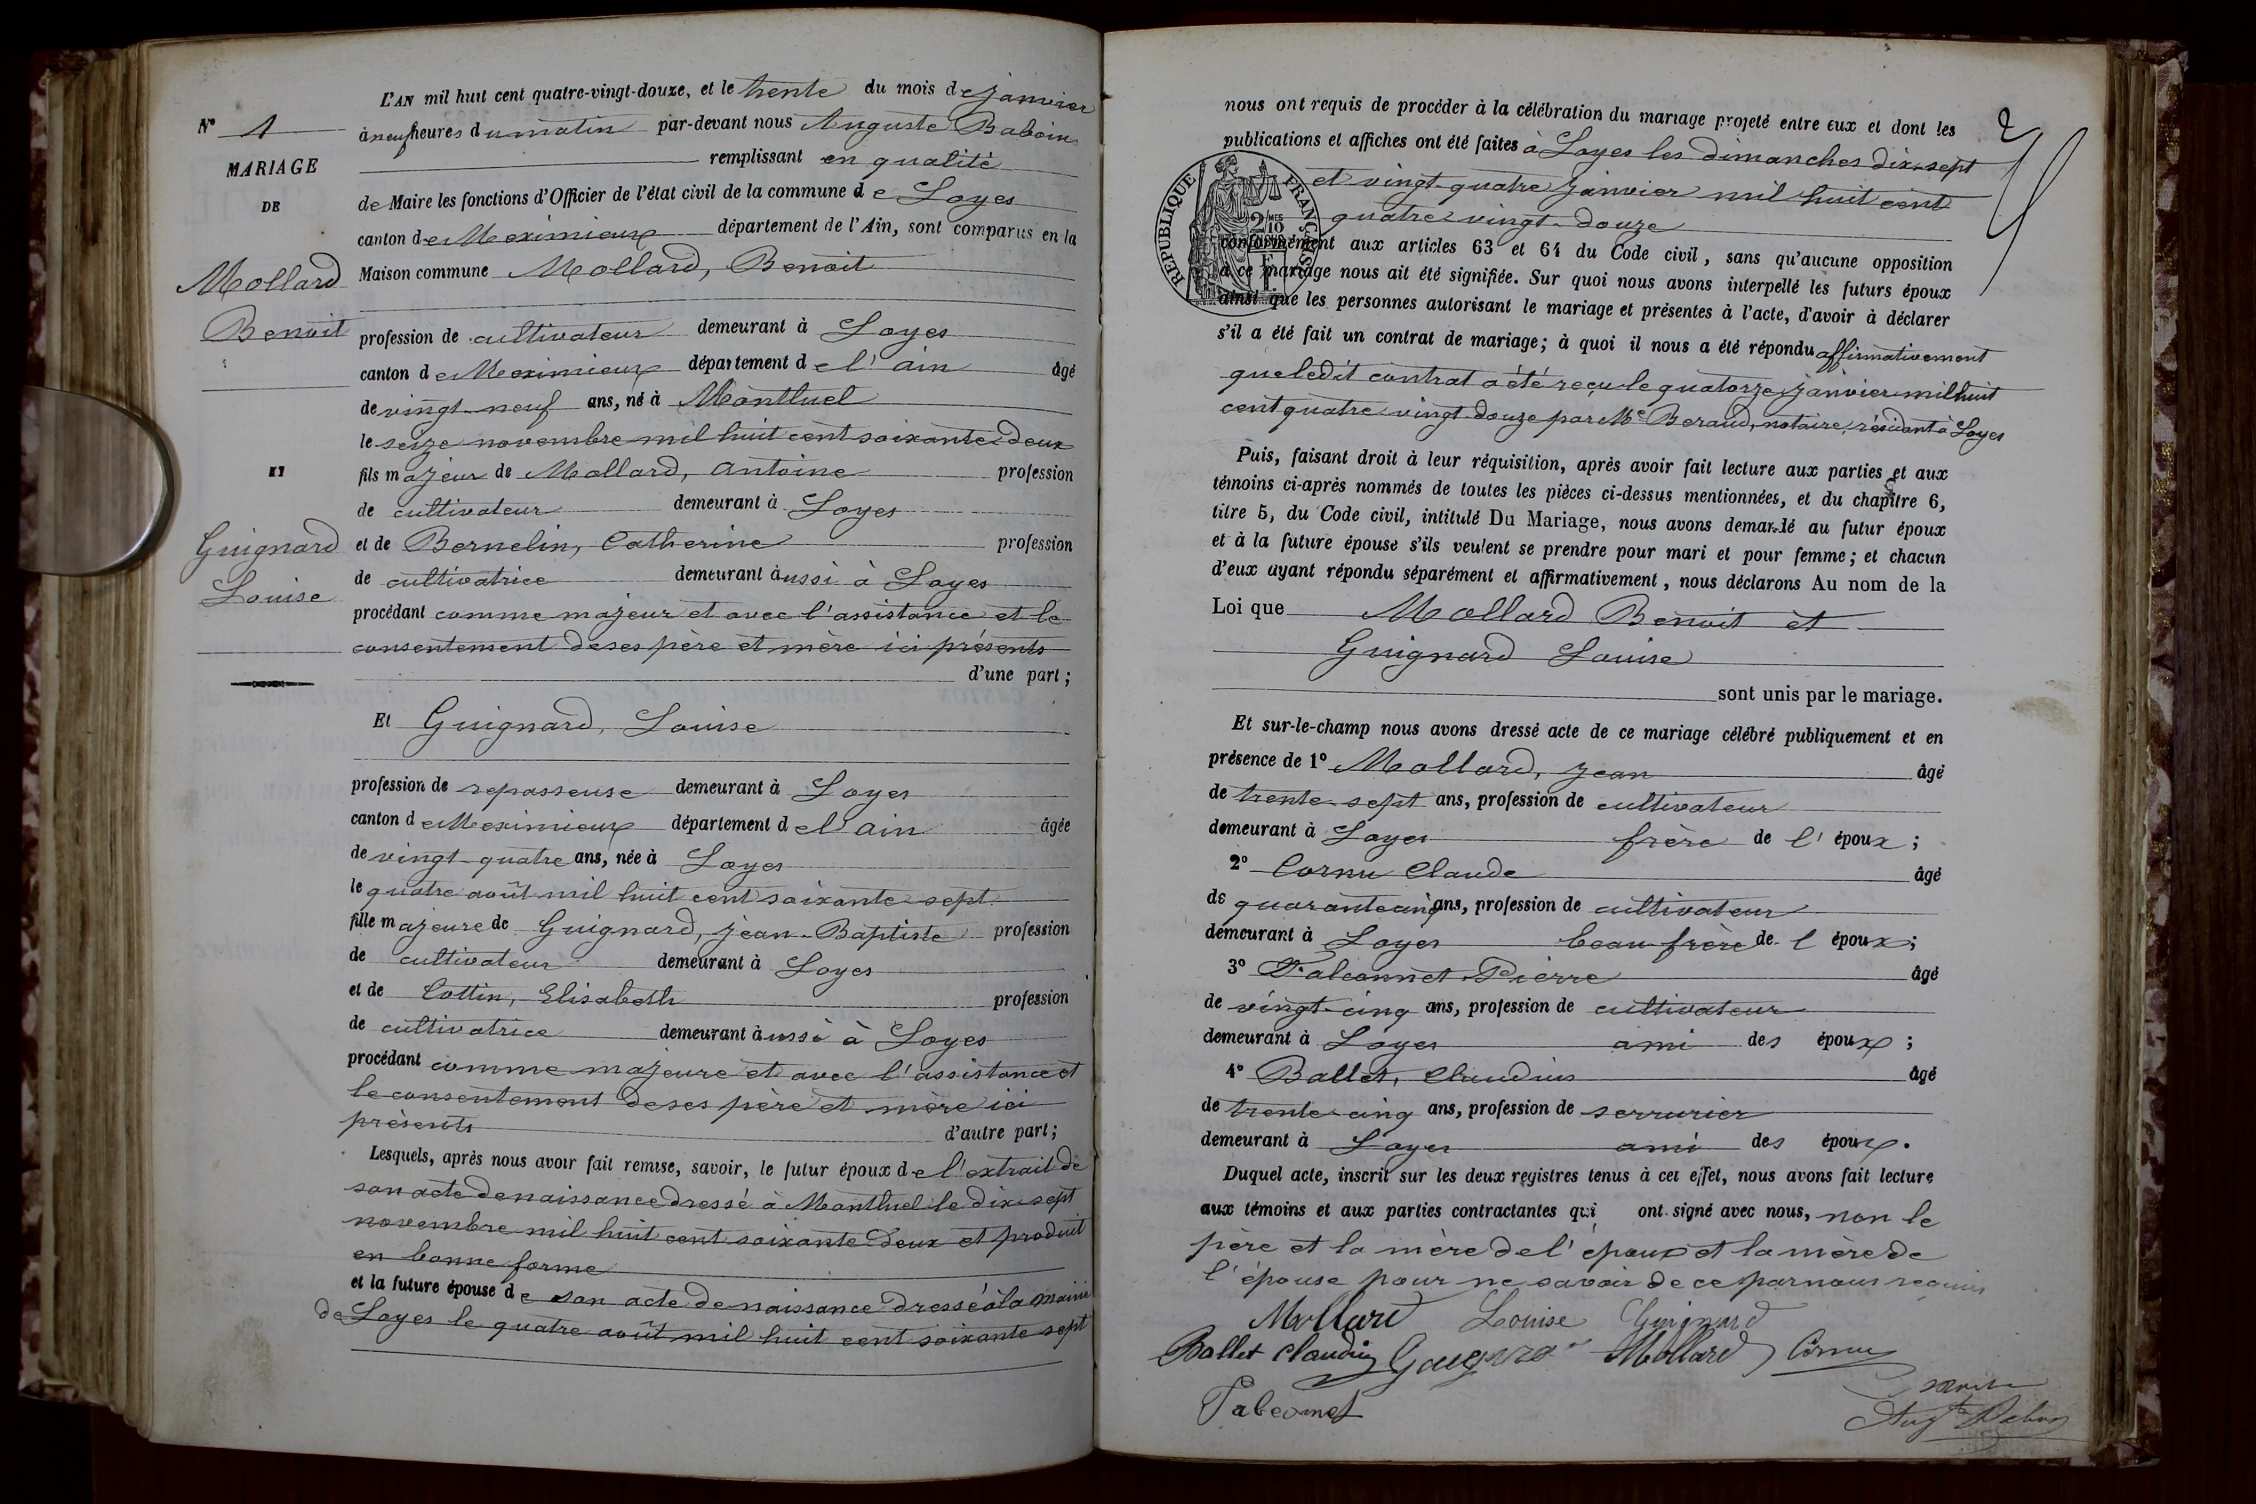 L'AN mil huit cent quatre-vingt-douze, et le trente du mois de janvier
N° 1
à neuf heures du matin par-devant nous Auguste Baboin
remplissant en qualité
MARIAGE
de Maire les fonctions d'Officier de l'état civil de la commune de Loyes
DE
canton de Meximieux département de l'Ain, sont comparus en la
Maison commune Mollard, Benoit
Mollard
Benoit
profession de cultivateur demeurant à Loyes
canton de Meximieux département de l'ain âgé
de vingt-neuf ans, né à Montluel
le seize novembre mil huit cent soixante deux
ET
fils majeur de Mollard, Antoine profession
de cultivateur demeurant à Loyes
Guignard
Louise
et de Bernelin, Catherine profession
de cultivatrice demeurant aussi à Loyes
procédant comme majeur et avec l'assistance et le
consentement de ses père et mère ici présents
d'une part ;
Et Guignard, Louise
profession de repasseuse demeurant à Loyes
canton de Meximieux département de l'ain âgée
de vingt-quatre ans, née à Loyes
le quatre août mil huit cent soixante sept
fille majeure de Guignard, Jean-Baptiste profession
de cultivateur demeurant à Loyes
et de Cottin, Elisabeth profession
de cultivatrice demeurant aussi à Loyes
procédant comme majeure et avec l'assistance et
le consentement de ses père et mère ici
présents d'autre part ;
Lesquels, après nous avoir fait remise, savoir, le futur époux de l'extrait de
son acte de naissance dressé à Montluel le dix-sept
novembre mil huit cent soixante deux et produit
en bonne forme
et la future épouse de son acte de naissance dressé à la mairie
de Loyes le quatre août mil huit cent soixante sept
2
nous ont requis de procéder à la célébration du mariage projeté entre eux et dont les
publications et affiches ont été faites à Loyes les dimanches dix-sept
et vingt-quatre janvier mil huit cent
quatre vingt-douze
RÉPUBLIQUE FRANÇAISE
conformément aux articles 63 et 64 du Code civil, sans qu'aucune opposition
à ce mariage nous ait été signifiée. Sur quoi nous avons interpellé les futurs époux
ainsi que les personnes autorisant le mariage et présentes à l'acte, d'avoir à déclarer
s'il a été fait un contrat de mariage ; à quoi il nous a été répondu affirmativement
que ledit contrat a été reçu le quatorze janvier mil huit
cent quatre vingt douze par Me Beraud, notaire, résidant à Loyes
Puis, faisant droit à leur réquisition, après avoir fait lecture aux parties et aux
témoins ci-après nommés de toutes les pièces ci-dessus mentionnées, et du chapitre 6,
titre 5, du Code civil, intitulé Du Mariage, nous avons demandé au futur époux
et à la future épouse s'ils veulent se prendre pour mari et pour femme ; et chacun
d'eux ayant répondu séparément et affirmativement, nous déclarons Au nom de la
Loi que Mollard Benoit et
Guignard Louise
sont unis par le mariage.
Et sur-le-champ nous avons dressé acte de ce mariage célébré publiquement et en
présence de 1° Mollard, Jean âgé
de trente-sept ans, profession de cultivateur
demeurant à Loyes frère de l'époux ;
2° Cornu Claude âgé
de quarante cinq ans, profession de cultivateur
demeurant à Loyes beau-frère de l époux ;
3° Falconnet Pierre âgé
de vingt-cinq ans, profession de cultivateur
demeurant à Loyes ami des époux ;
4° Ballet, Claudius âgé
de trente-cinq ans, profession de serrurier
demeurant à Loyes ami des époux.
Duquel acte, inscrit sur les deux registres tenus à cet effet, nous avons fait lecture
aux témoins et aux parties contractantes qui ont signé avec nous, non le
père et la mère de l'époux et la mère de
l'épouse pour ne savoir de ce par nous requis
Mollard Louise Guignard
Ballet Claudius Guignard Mollard Cornu
Falconnet